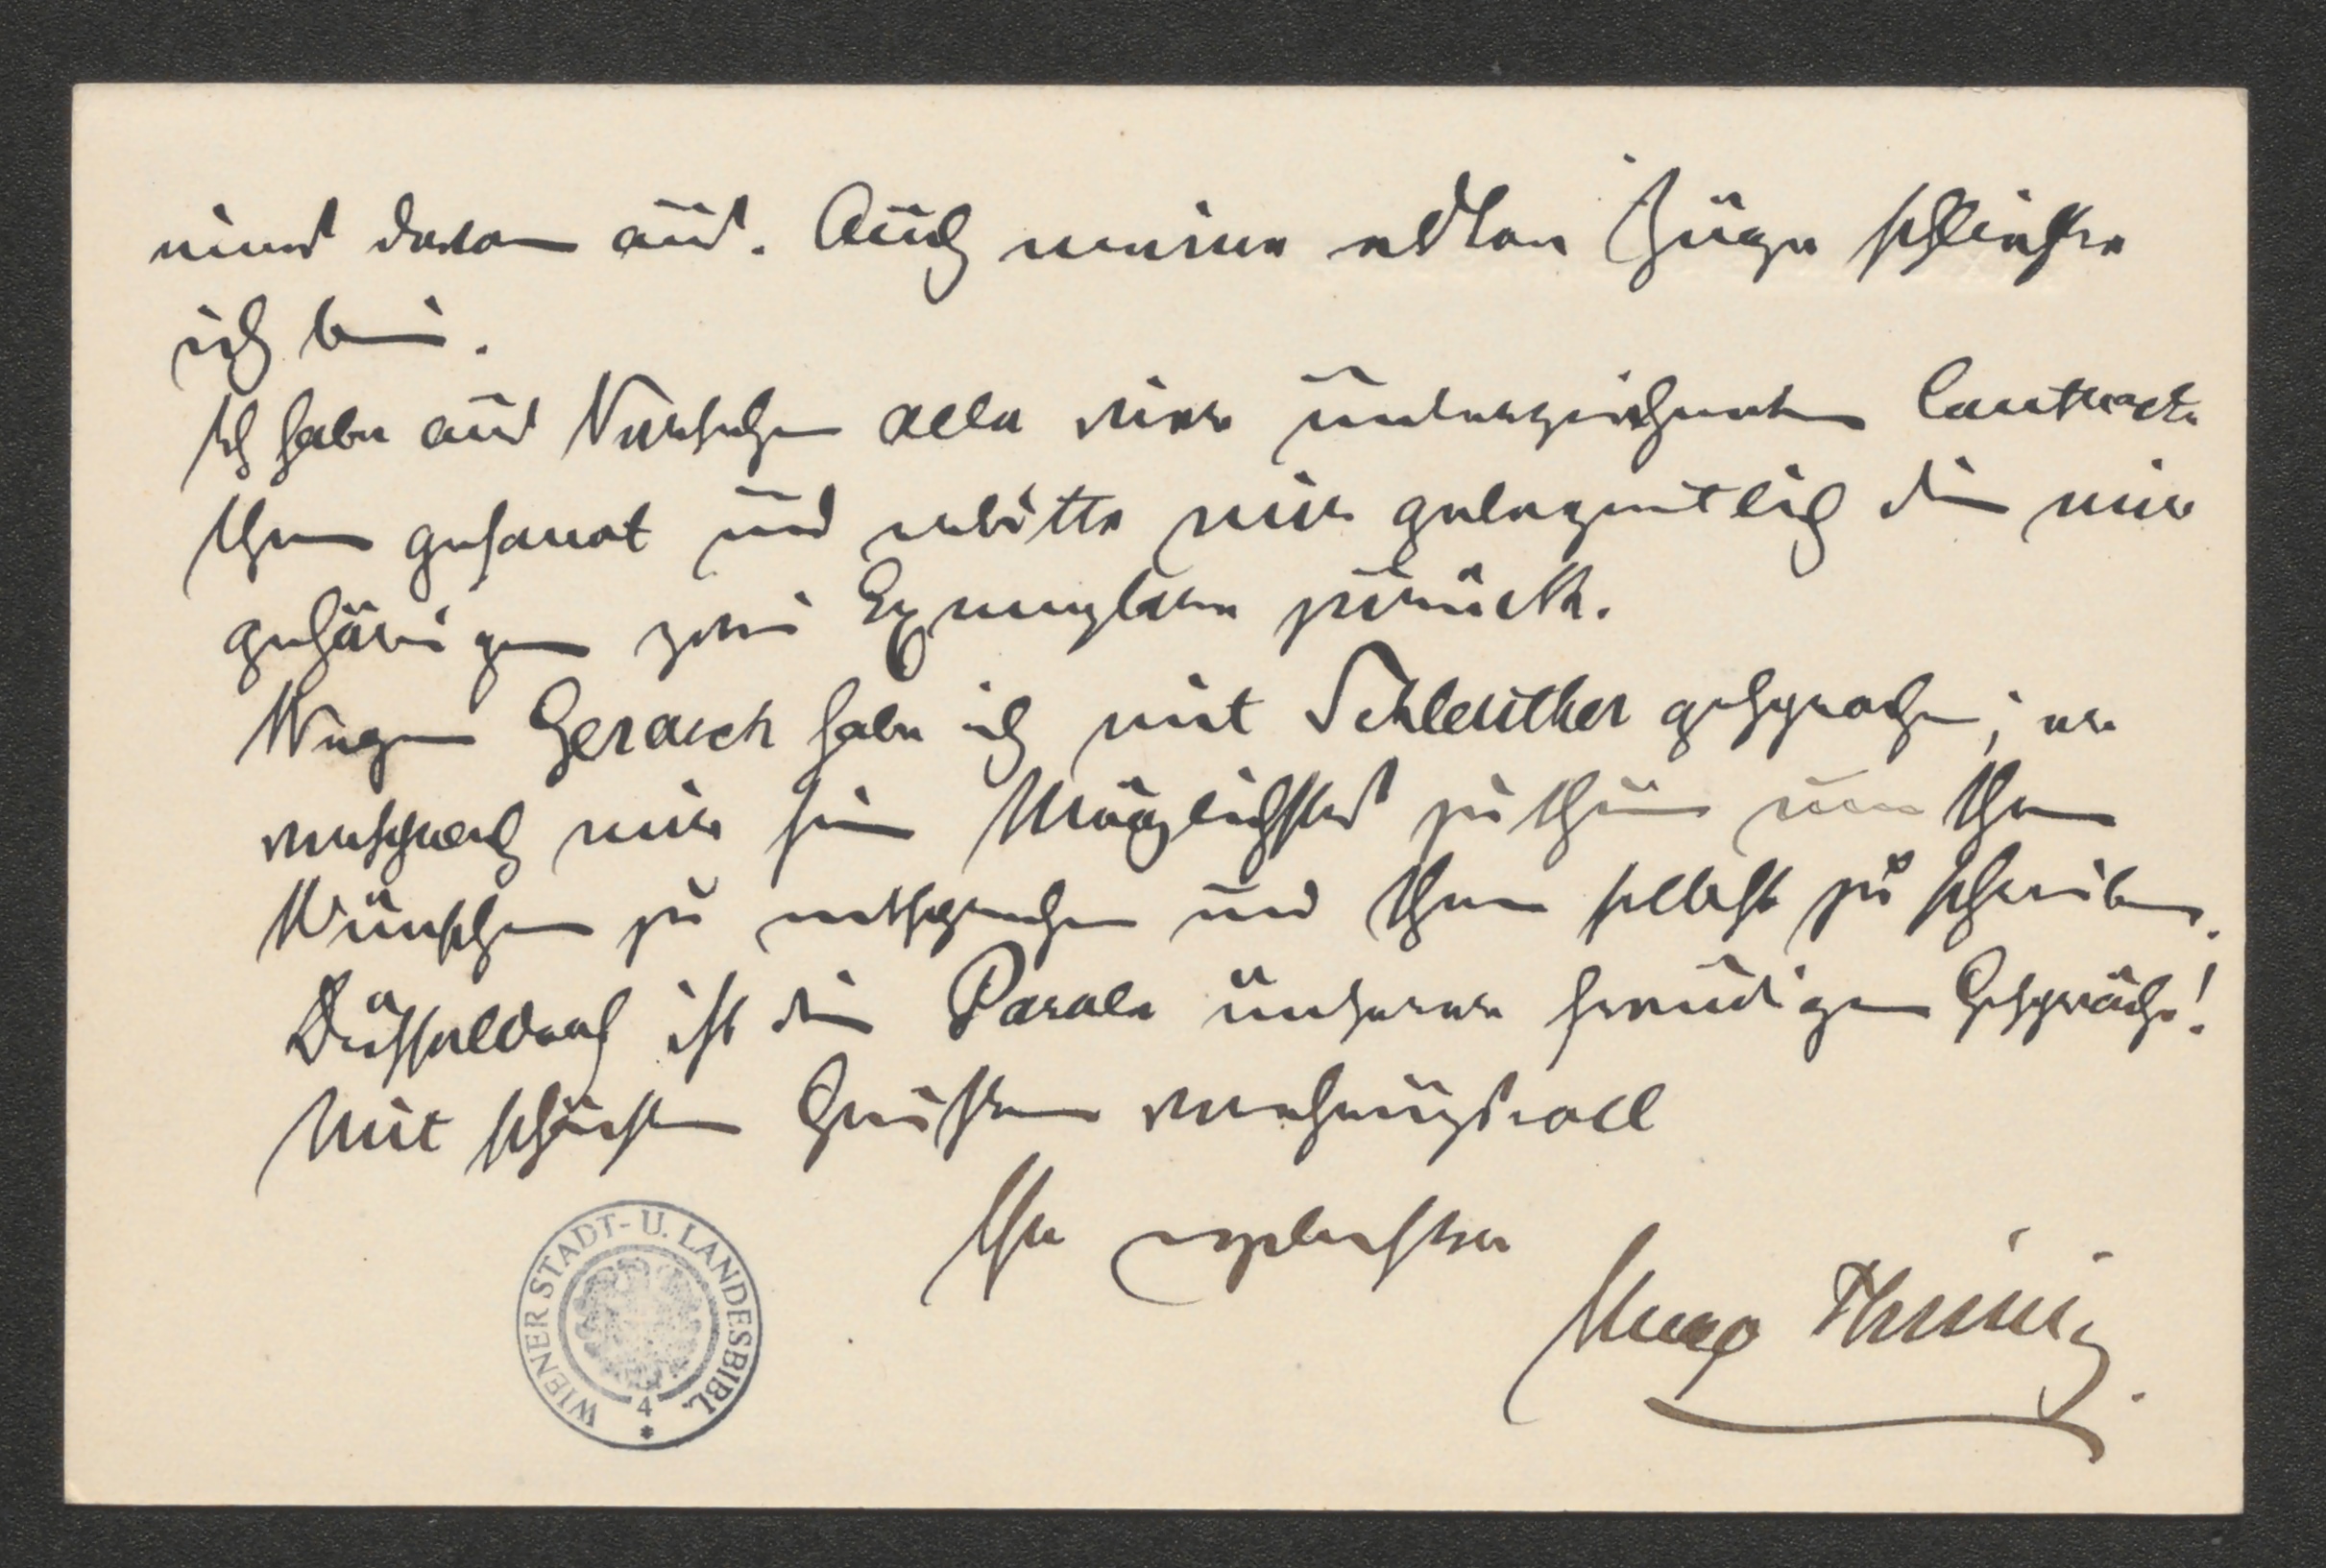 eines davon aus. Auch meine edlen Züge schließe
ich bei.
Ich habe aus Versehen alle vier unterzeichneten Contracte
Ihnen gesandt und erbitte mir gelegentlich die mir
gehörigen zwei Exemplare zurück.
Wegen Gerasch habe ich mit Schlenther gesprochen; er
versprach mir sein Möglichstes zu thun um Ihren
Wünschen zu entsprechen und Ihnen selbst zu schreiben.
Düsseldorf ist die Parole unserer freudigen Gespräche!
Mit schönsten Grüßen verehrungsvoll
Ihr ergebenster
Hugo Thimig.
WIENER STADT- U. LANDESBIBL.
4